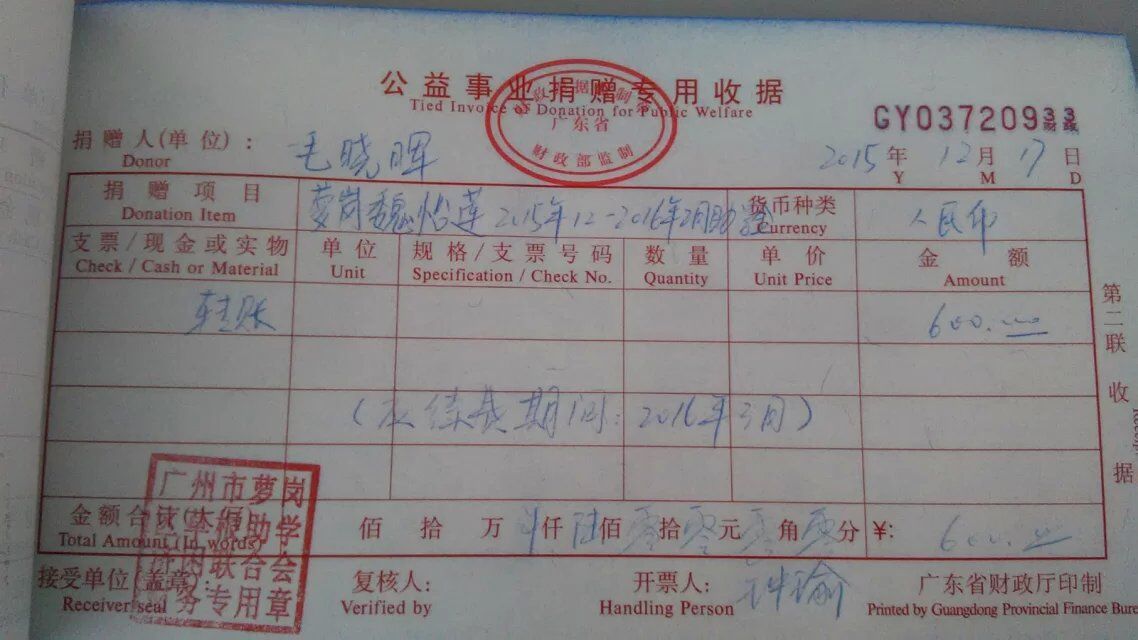 公益事业捐赠专用收据
Tied Invoice of Donation for Public Welfare
广东省
财政部监制
GY03720933
财政
捐赠人(单位): 毛晓晖 2015年12月17日
Donor Y M D
捐赠项目 萝岗魏怡莲2015年12-2016年2月助 货币种类 人民币
Donation Item Currency
支票/现金或实物 单位 规格/支票号码 数量 单价 金额
Check / Cash or Material Unit Specification / Check No. Quantity Unit Price Amount
转账 600.00
(应续费期间:2016年3月)
金额合计(大写) 佰 拾 万 仟陆佰零拾零元零角零分 ¥: 600.00
Total Amount (In words)
接受单位(盖章): 复核人: 开票人: 瑜 广东省财政厅印制
Receiver seal Verified by Handling Person Printed by Guangdong Provincial Finance Bure
广州市萝岗
助学
济困联合会
财务专用章
第二联 收据